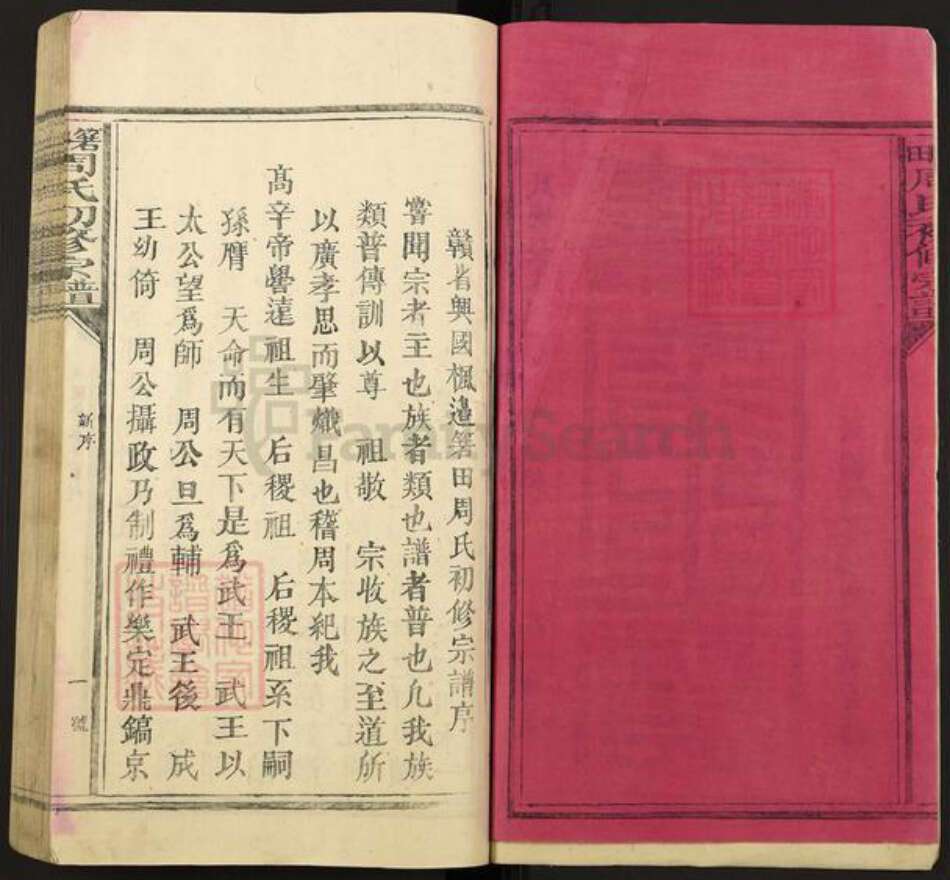 田周氏初修宗譜
贛省興國楓邊箬田周氏初修宗譜序
嘗聞宗者主也族者類也譜者普也凢我族
類普傳訓以尊 祖敬 宗收族之至道所
以廣孝思而肇熾昌也稽周本紀我
高辛帝嚳遠祖生 后稷祖 后稷祖系下嗣
孫膺 天命而有天下是爲武王 武王以
太公望爲師 周公旦爲輔 武王後 成
王幼倚 周公攝政乃制禮作樂定鼎鎬京
箬周氏初修宗譜
新序
一 號
FamilySearch